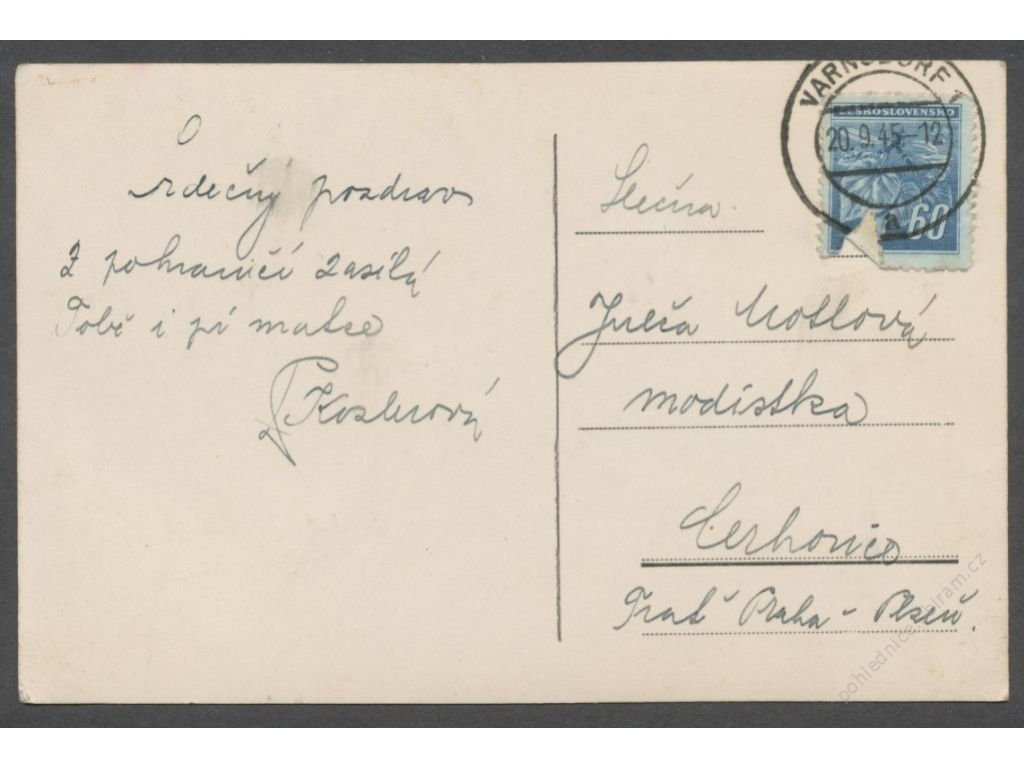 O
srdečný pozdrav
z pohraničí zasílá
Tobě i pí matce
Kosherová
Slečna
Julča Motlová
modistka
Cerhovice
Trať Praha - Plzeň.
VARNSDORF 1
20. 9. 45 - 12
a
ČESKOSLOVENSKO
60
pohlednice-biram.cz